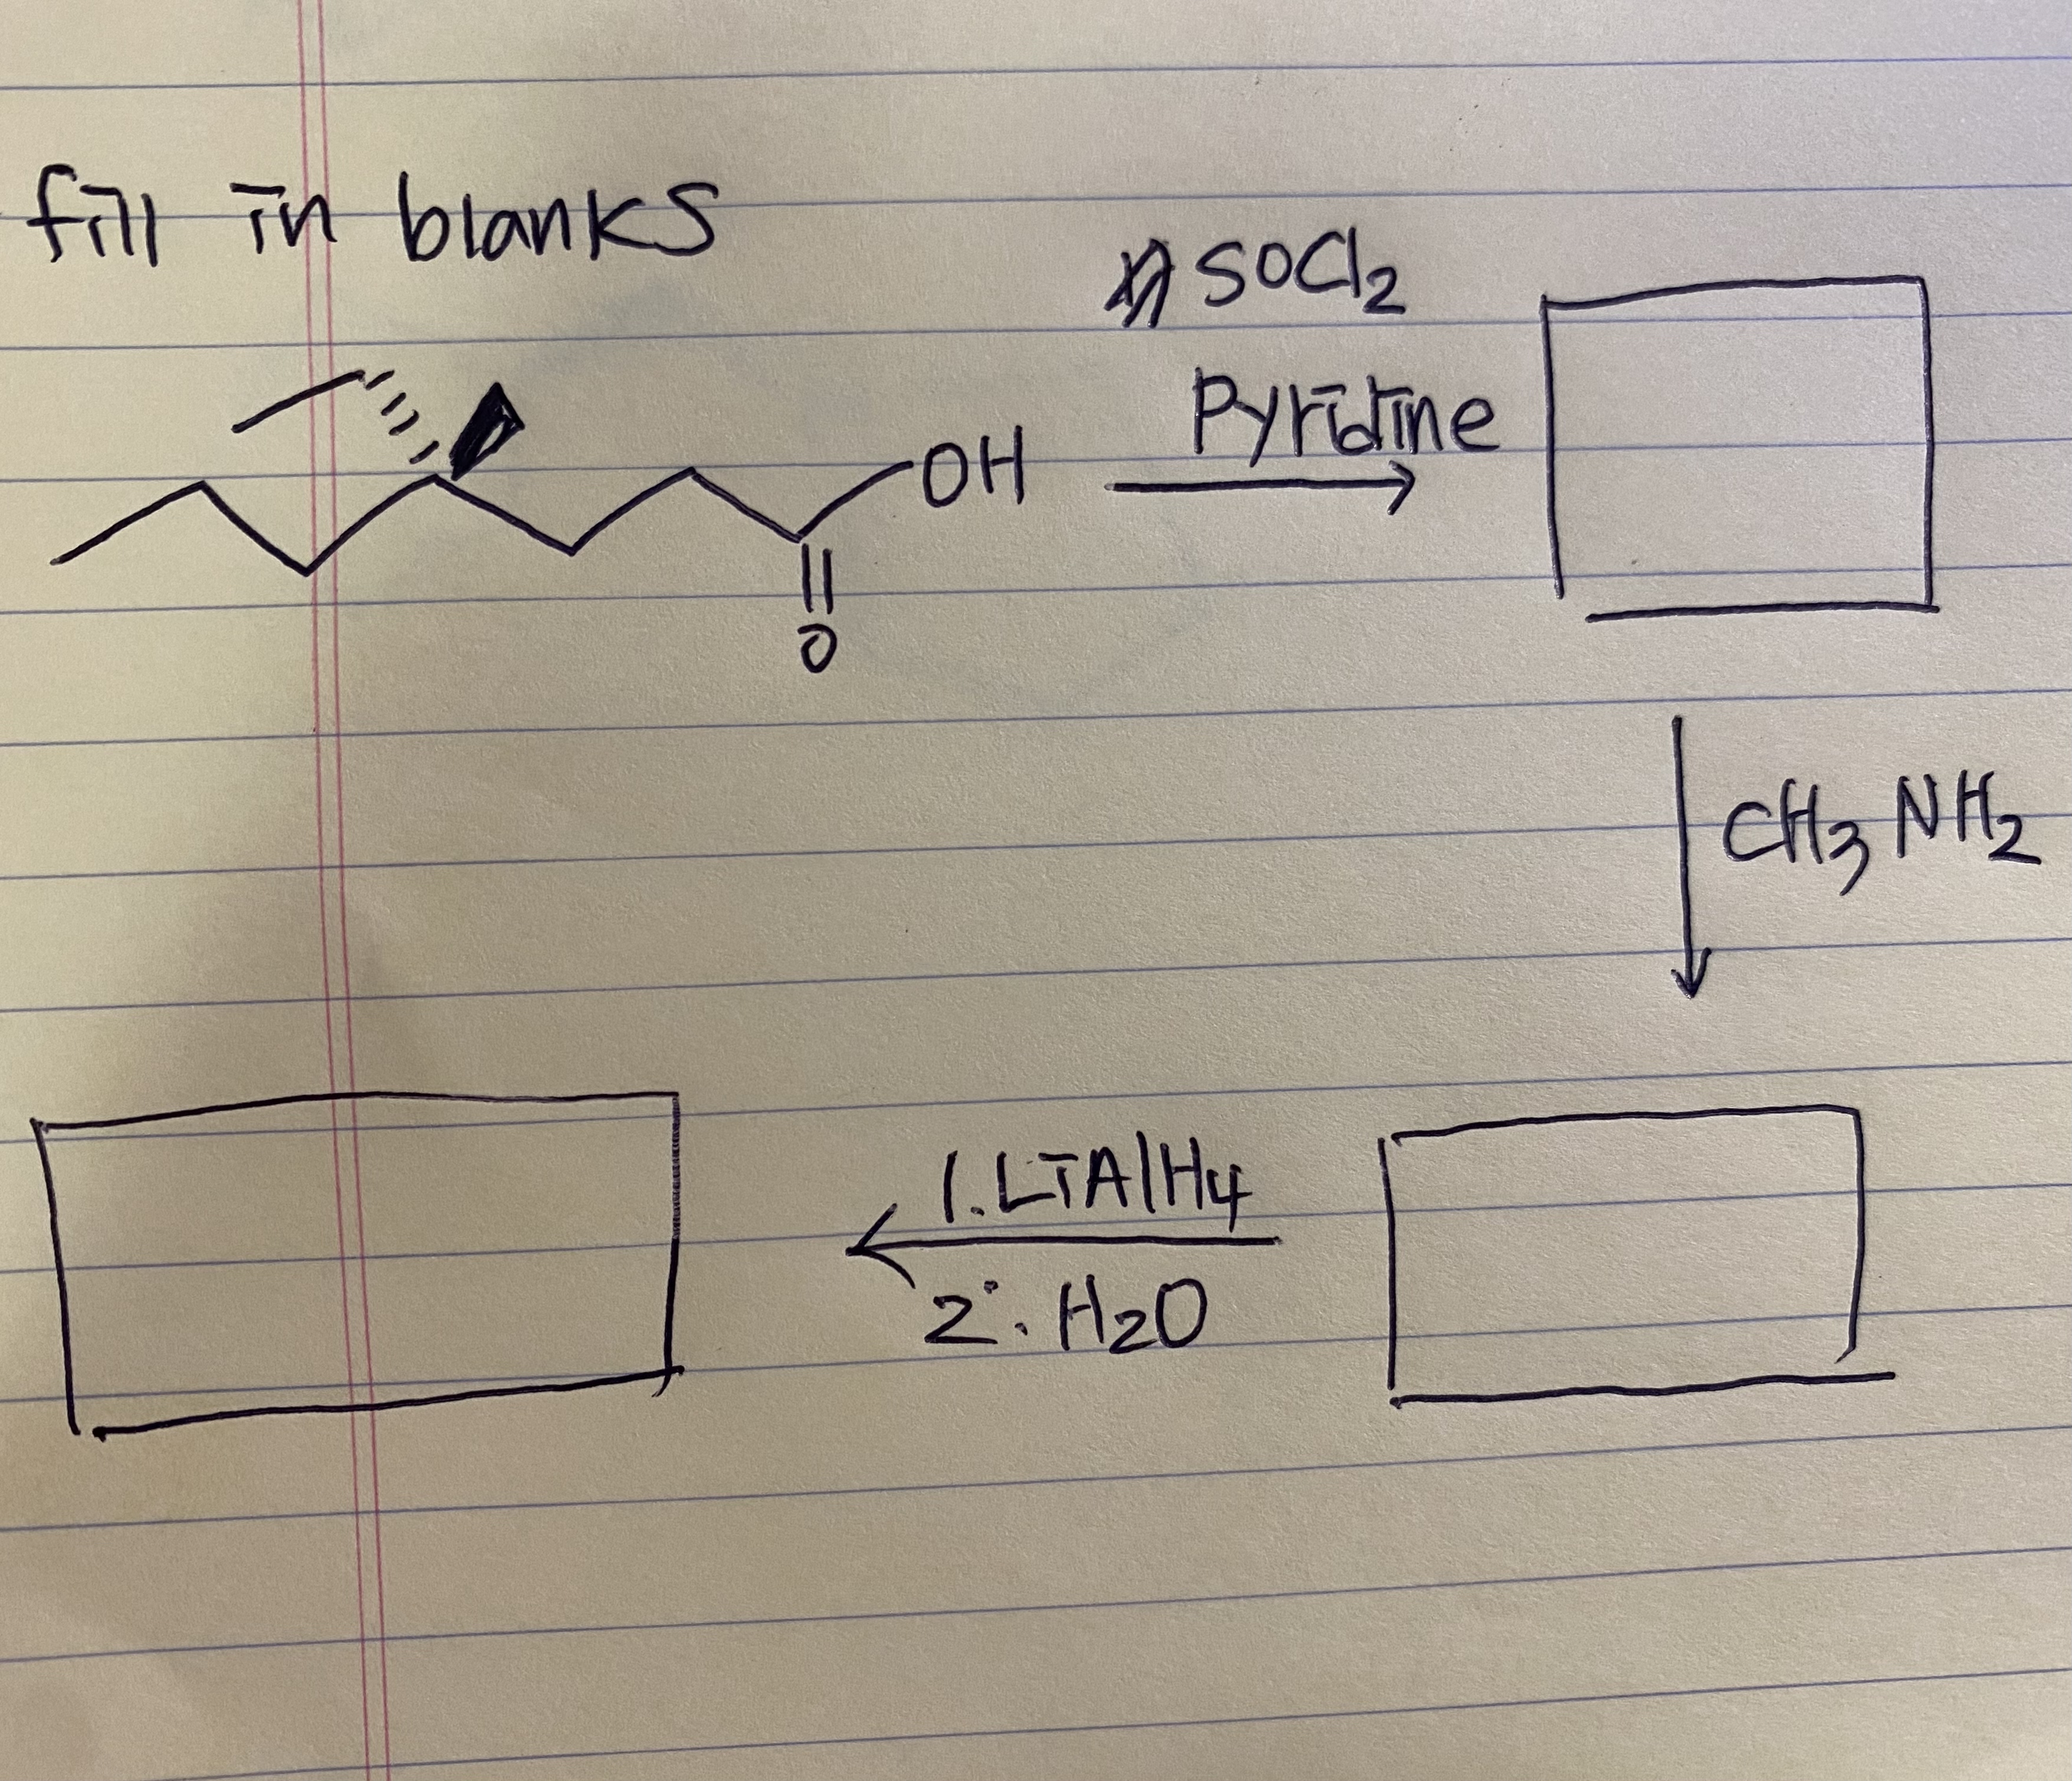 fill in blanks
SOCl2
Pyridine
OH
O
CH3NH2
1. LiAlH4
2. H2O